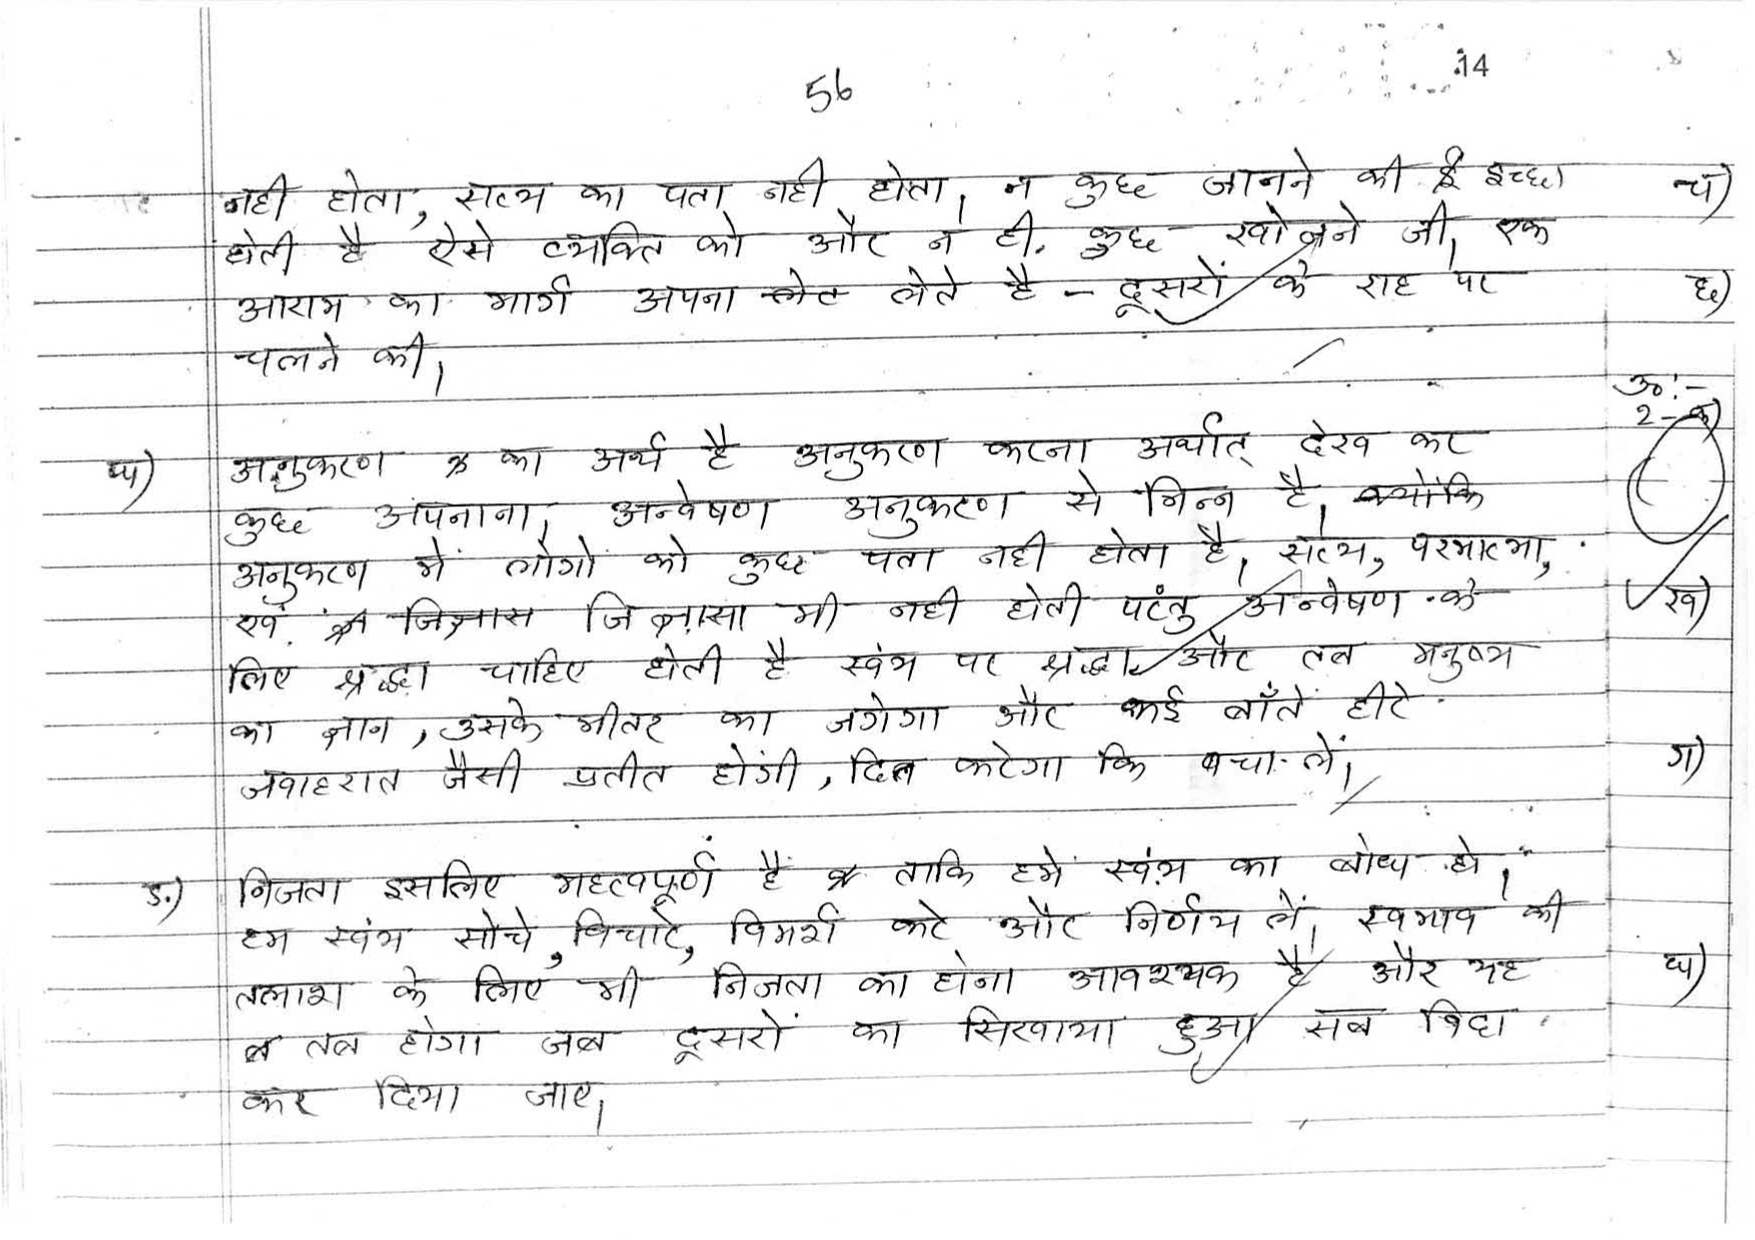 56
14
नही होता, सत्य का पता नही होता। न कुछ जानने की इच्छा
होती है ऐसे व्यक्ति को और न ही कुछ खोजने जी। एक
आराम का मार्ग अपना लेते है - दूसरों के राह पर
चलने की।
घ) अनुकरण का अर्थ है अनुकरण करना अर्थात् देख कर
कुछ अपनाना। अन्वेषण अनुकरण से भिन्न है। क्योंकि
अनुकरण में लोगो को कुछ पता नही होता है। सत्य, परमात्मा,
एवं जिज्ञासा भी नही होती परंतु अन्वेषण के
लिए श्रद्धा चाहिए होती है स्वंय पर श्रद्धा और तब मनुष्य
का ज्ञान, उसके भीतर का जगेगा और कई बाँते हीरे
जवाहरात जैसी प्रतीत होंगी, दिल करेगा कि बचा लें।
ङ) निजता इसलिए महत्वपूर्ण है ताकि हमे स्वंय का बोध हो।
हम स्वंय सोचे, विचारे, विमर्श करे और निर्णय लें। स्वभाव की
तलाश के लिए भी निजता का होना आवश्यक है और यह
तब होगा जब दूसरों का सिखाया हुआ सब विदा
कर दिया जाए।
च)
छ)
उ०:-
2-क)
ख)
ग)
घ)